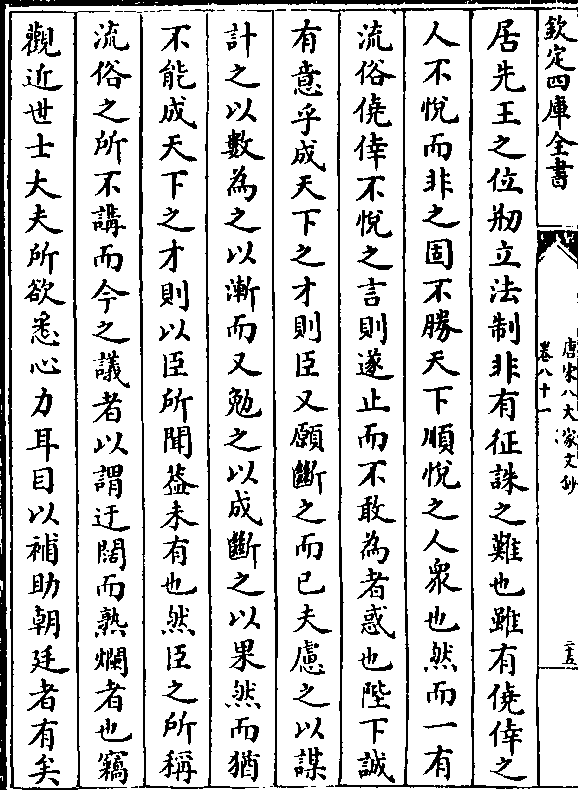 欽定四庫全書
唐宋八大家文鈔
卷八十一
二五
居先王之位剏立法制非有征誅之難也雖有僥倖之
人不悅而非之固不勝天下順悅之人衆也然而一有
流俗僥倖不悅之言則遂止而不敢為者惑也陛下誠
有意乎成天下之才則臣又願斷之而已夫慮之以謀
計之以數為之以漸而又勉之以成斷之以果然而猶
不能成天下之才則以臣所聞葢未有也然臣之所稱
流俗之所不講而今之議者以謂迂闊而熟爛者也竊
觀近世士大夫所欲悉心力耳目以補助朝廷者有矣